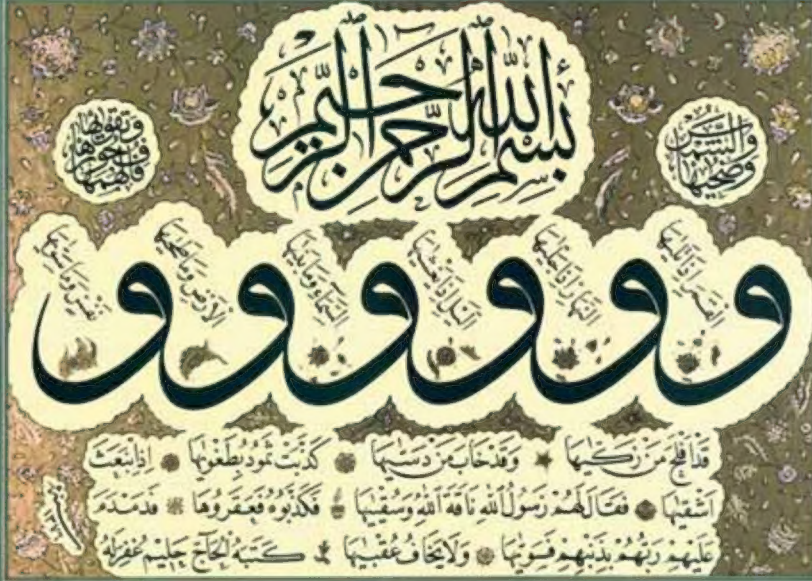 بِسْمِ اللهِ الرَّحْمٰنِ الرَّحِيمِ
وَالشَّمْسِ وَضُحٰيهَا
وَالْقَمَرِ اِذَا تَلٰيهَا
وَالنَّهَارِ اِذَا جَلّٰيهَا
وَالَّيْلِ اِذَا يَغْشٰيهَا
وَالسَّمَاءِ وَمَا بَنٰيهَا
وَالْاَرْضِ وَمَا طَحٰيهَا
وَنَفْسٍ وَمَا سَوّٰيهَا
فَاَلْهَمَهَا فُجُورَهَا وَتَقْوٰيهَا
قَدْ اَفْلَحَ مَنْ زَكّٰيهَا وَقَدْ خَابَ مَنْ دَسّٰيهَا كَذَّبَتْ ثَمُودُ بِطَغْوٰيهَا اِذِ انْبَعَثَ
اَشْقٰيهَا فَقَالَ لَهُمْ رَسُولُ اللهِ نَاقَةَ اللهِ وَسُقْيٰهَا فَكَذَّبُوهُ فَعَقَرُوهَا فَدَمْدَمَ
عَلَيْهِمْ رَبُّهُمْ بِذَنْبِهِمْ فَسَوّٰيهَا وَلَا يَخَافُ عُقْبٰيهَا كَتَبَهُ الْحَاجّ حَلِيم غُفِرَ لَهُ